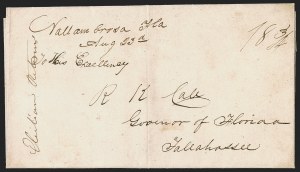 Vallambrosa Fla
Aug 23d
18 3/4
To His Excellency
R K Call
Governor of Florida
Tallahassee